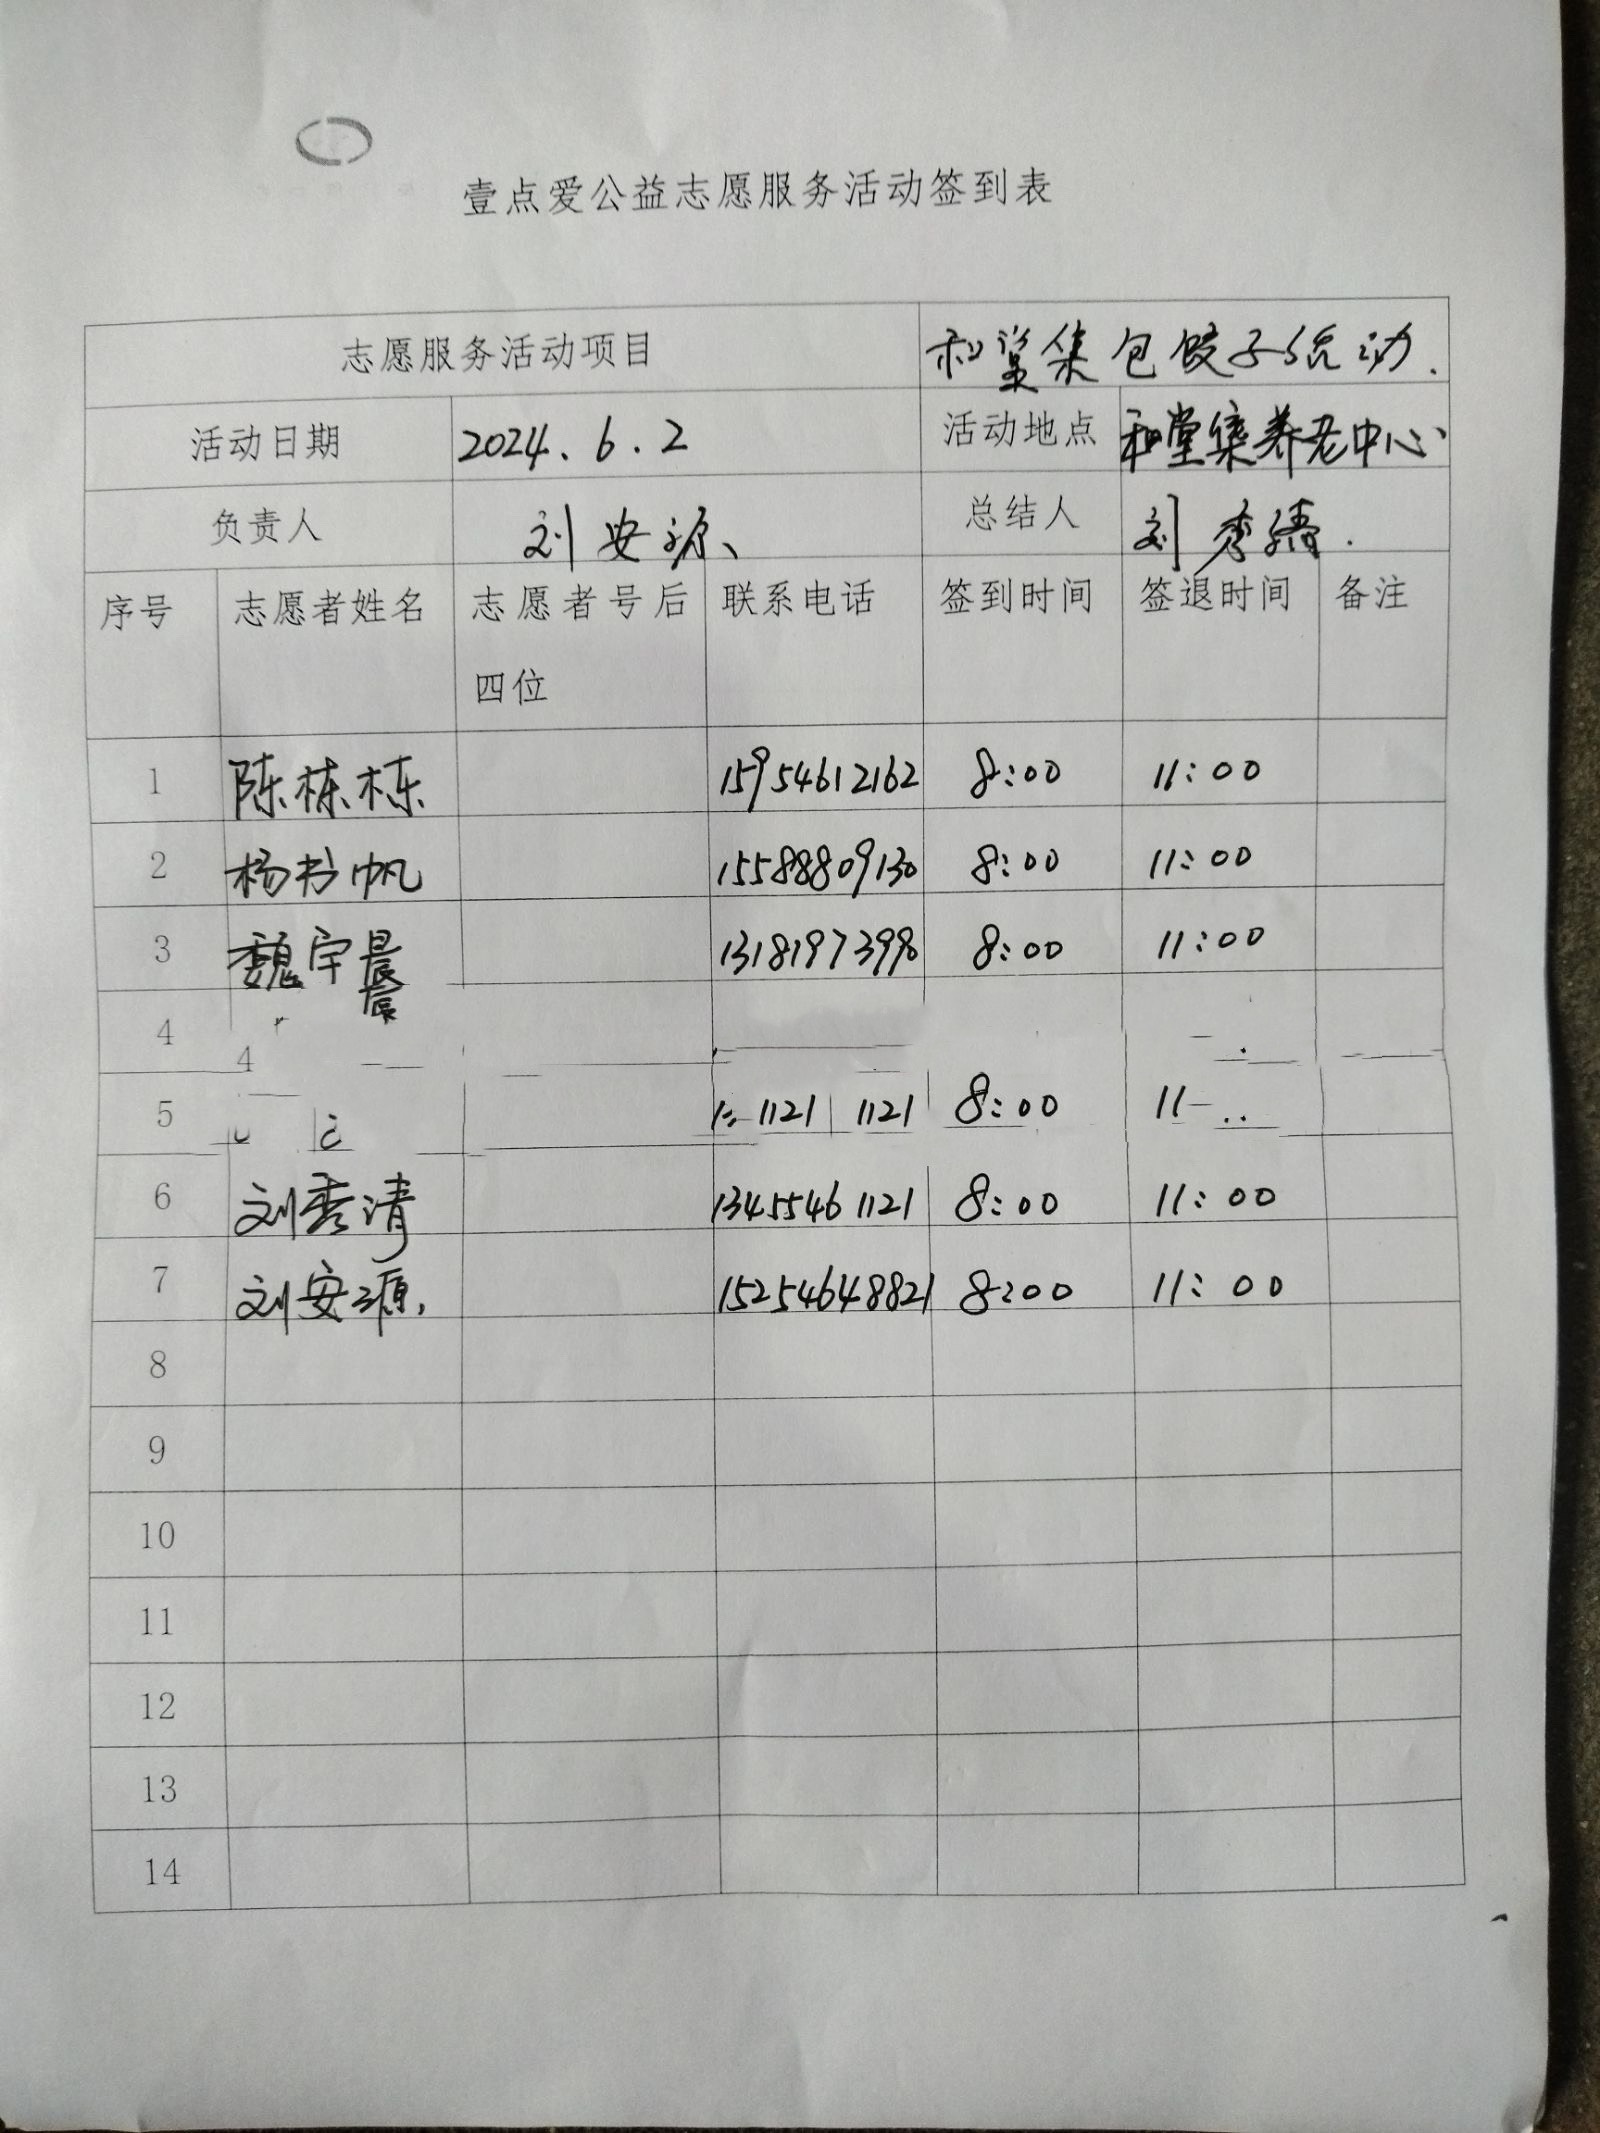 壹点爱公益志愿服务活动签到表
志愿服务活动项目 和堂集包饺子活动.
活动日期 2024.6.2 活动地点 和堂集养老中心
负责人 刘安源、 总结人 刘秀清.
序号 志愿者姓名 志愿者号后四位 联系电话 签到时间 签退时间 备注
1 陈栋栋 15954612162 8:00 11:00
2 杨书帆 15588809130 8:00 11:00
3 魏宇晨 8:00 11:00
4
4
5 1121 1121 8:00 11
6 刘秀清 13455461121 8:00 11:00
7 刘安源. 15254648821 8:00 11:00
8
9
10
11
12
13
14